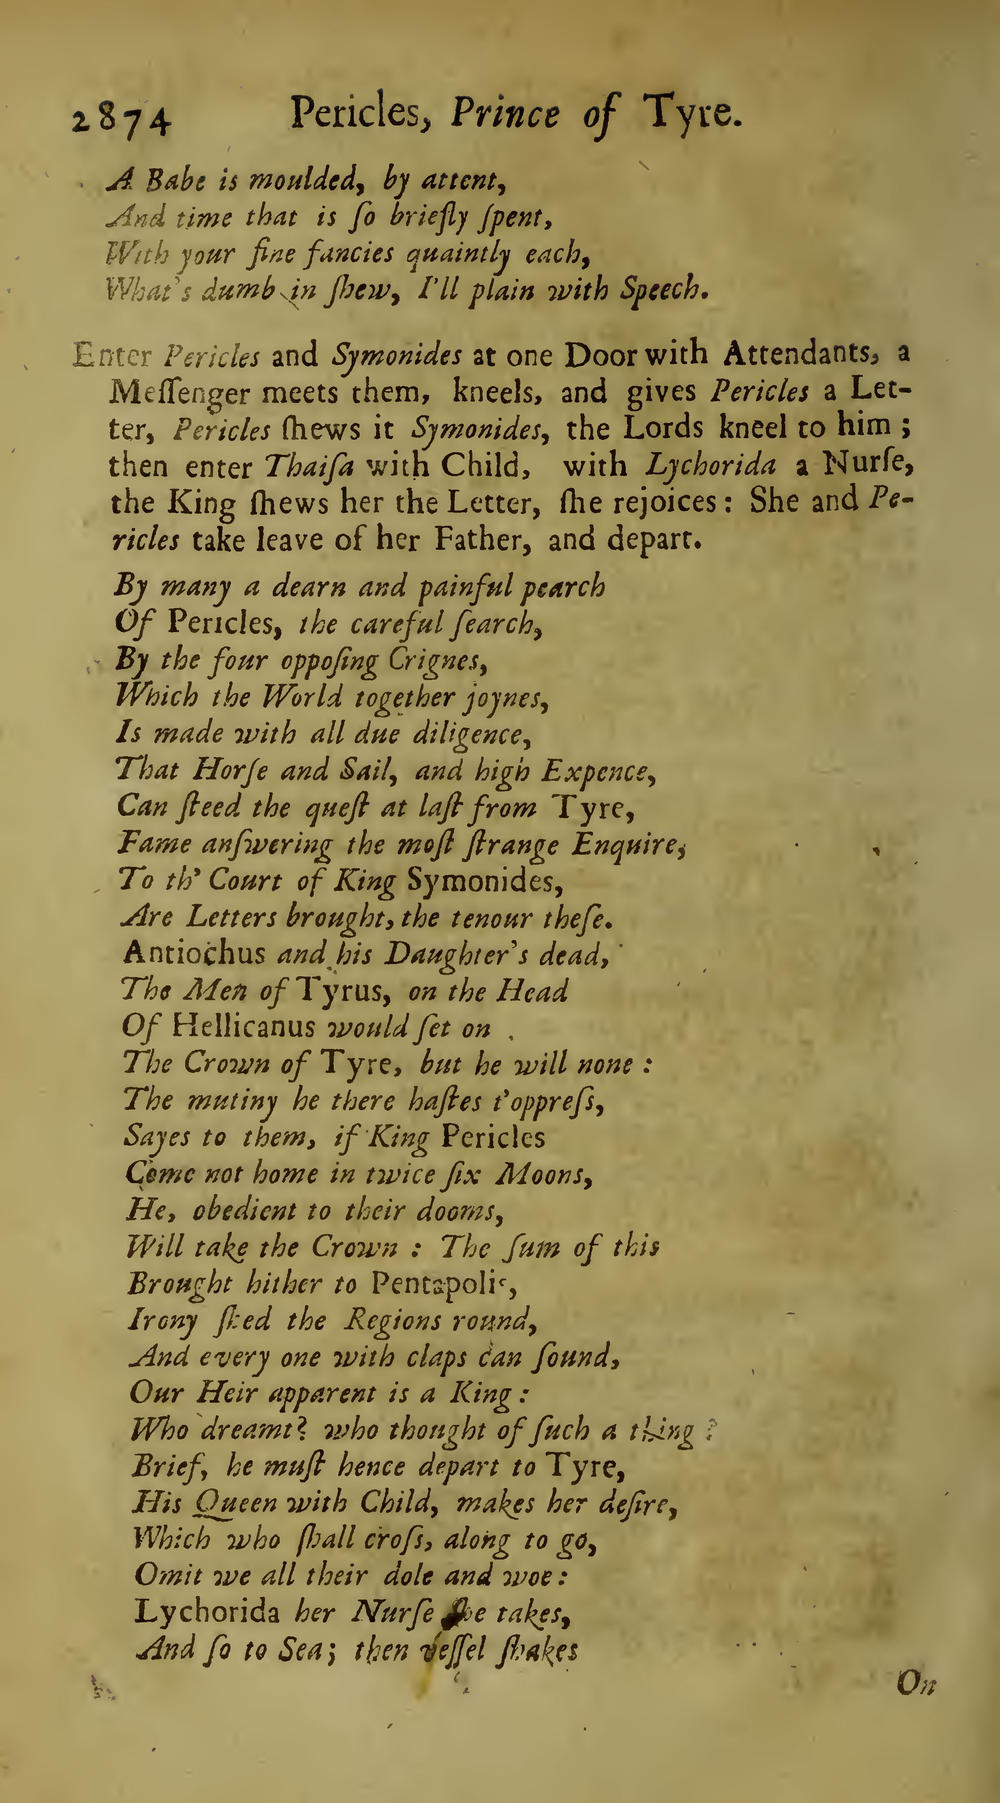 2874 Pericles, Prince of Tyre.
A Babe is moulded, by attent,
And time that is ſo briefly ſpent,
With your fine fancies quaintly each,
What's dumb in ſhew, I'll plain with Speech.
Enter Pericles and Symonides at one Door with Attendants, a
Meſſenger meets them, kneels, and gives Pericles a Let-
ter, Pericles ſhews it Symonides, the Lords kneel to him ;
then enter Thaiſa with Child, with Lychorida a Nurſe,
the King ſhews her the Letter, ſhe rejoices : She and Pe-
ricles take leave of her Father, and depart.
By many a dearn and painful pearch
Of Pericles, the careful ſearch,
By the four oppoſing Crignes,
Which the World together joynes,
Is made with all due diligence,
That Horſe and Sail, and high Expence,
Can ſteed the queſt at laſt from Tyre,
Fame anſwering the moſt ſtrange Enquire,
To th' Court of King Symonides,
Are Letters brought, the tenour theſe.
Antiochus and his Daughter's dead,
The Men of Tyrus, on the Head
Of Hellicanus would ſet on
The Crown of Tyre, but he will none :
The mutiny he there haſtes t'oppreſs,
Sayes to them, if King Pericles
Come not home in twice ſix Moons,
He, obedient to their dooms,
Will take the Crown : The ſum of this
Brought hither to Pentapolis,
Irony ſked the Regions round,
And every one with claps can ſound,
Our Heir apparent is a King :
Who dreamt? who thought of ſuch a thing ?
Brief, he muſt hence depart to Tyre,
His Queen with Child, makes her deſire,
Which who ſhall croſs, along to go,
Omit we all their dole and woe :
Lychorida her Nurſe ſhe takes,
And ſo to Sea ; then veſſel ſhakes
On